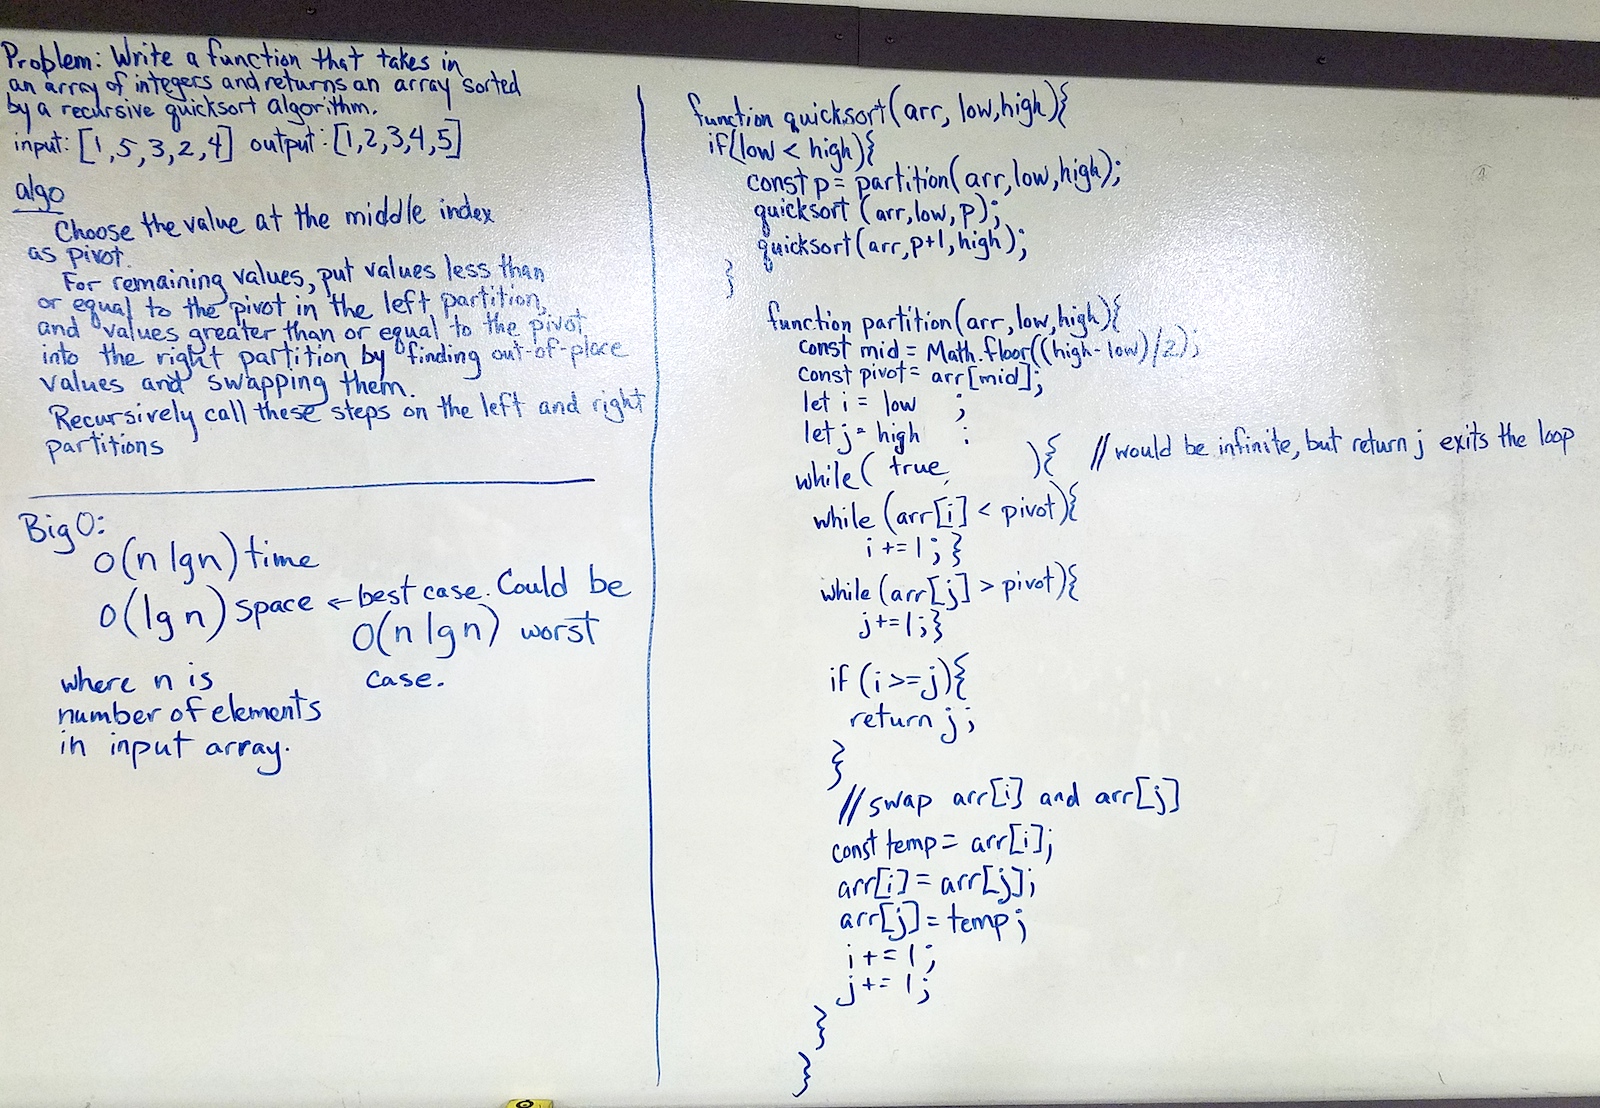 Problem: Write a function that takes in
an array of integers and returns an array sorted
by a recursive quicksort algorithm.
input: [1,5,3,2,4] output: [1,2,3,4,5]
algo
Choose the value at the middle index
as pivot.
For remaining values, put values less than
or equal to the pivot in the left partition,
and values greater than or equal to the pivot
into the right partition by finding out-of-place
values and swapping them.
Recursively call these steps on the left and right
partitions
Big O:
O(n lg n) time
O(lg n) space ← best case. Could be
O(n lg n) worst
case.
where n is
number of elements
in input array.
function quicksort(arr, low,high){
if(low < high){
const p = partition(arr,low,high);
quicksort (arr,low,p);
quicksort(arr,p+1,high);
}
function partition(arr,low,high){
const mid = Math.floor((high-low)/2);
const pivot = arr[mid];
let i = low ;
let j = high ;
while( true ){ // would be infinite, but return j exits the loop
while (arr[i] < pivot){
i += 1; }
while (arr[j] > pivot){
j+=1;}
if (i >= j){
return j;
}
// swap arr[i] and arr[j]
const temp = arr[i];
arr[i] = arr[j];
arr[j] = temp;
i += 1;
j += 1;
}
}